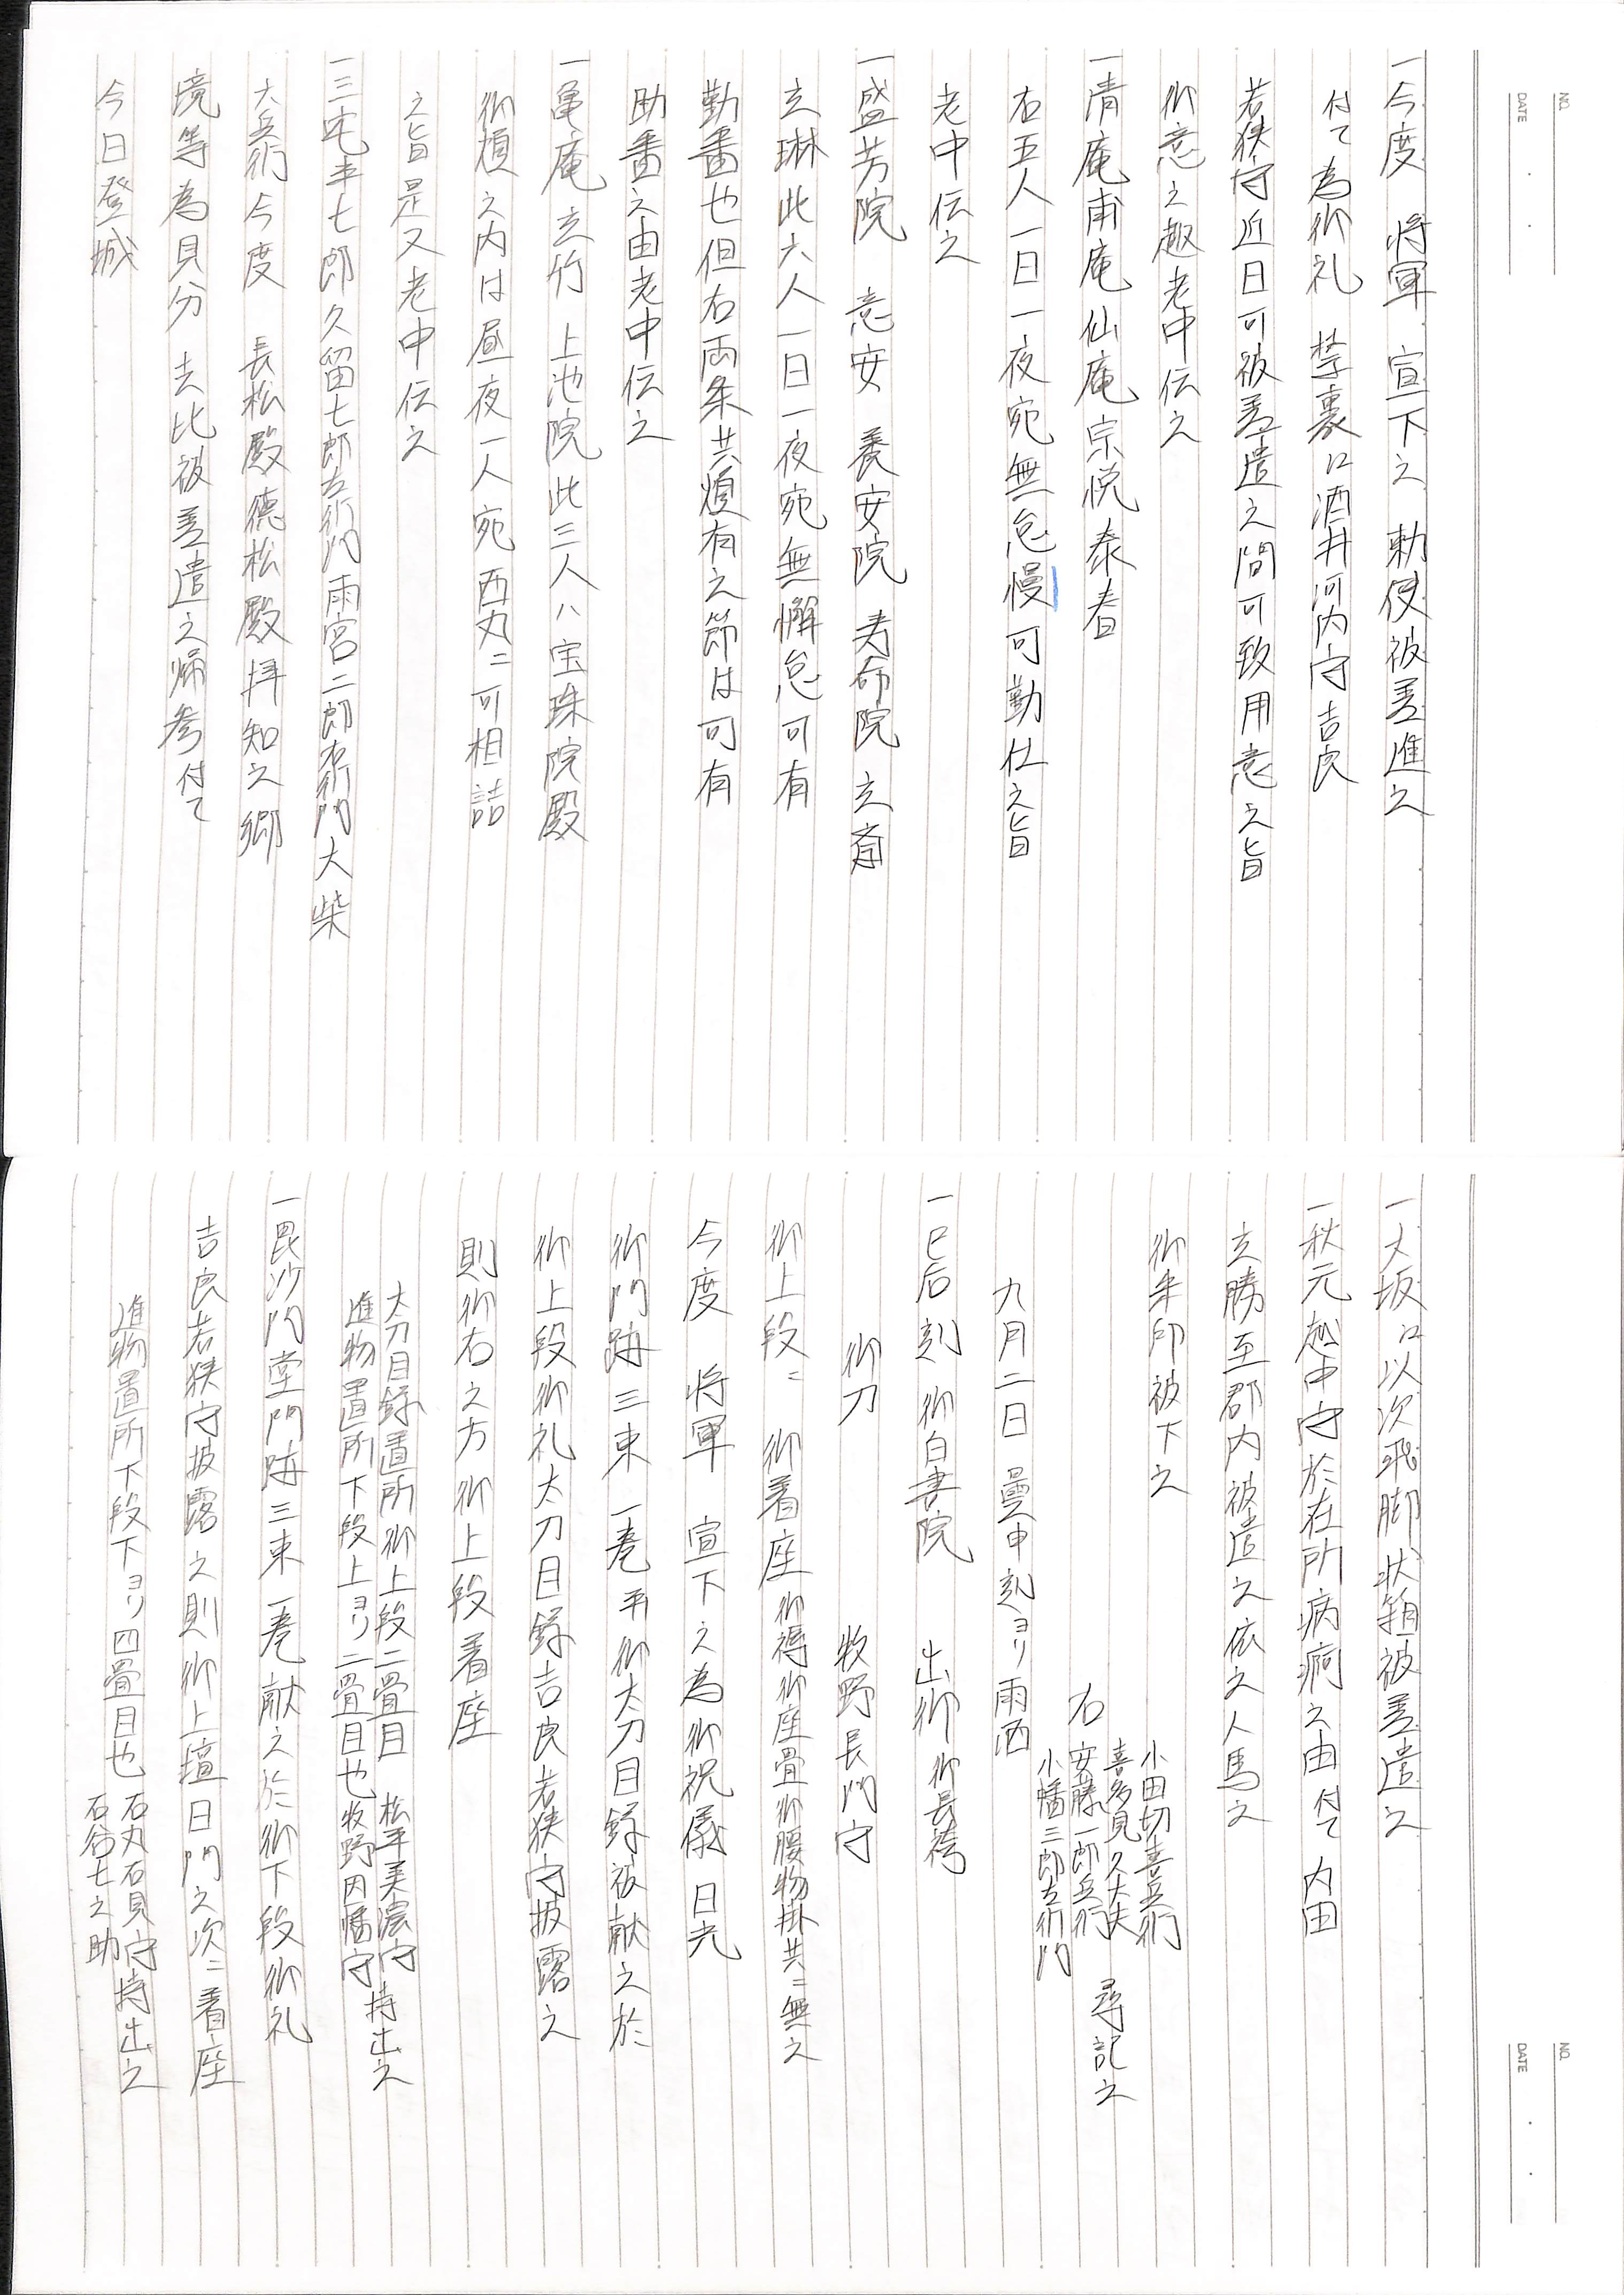 NO.
DATE
一今度 将軍 宣下之 勅使被差進之
付て為御礼 禁裏江酒井河内守吉良
若狭守近日可被差遣之間可致用意之旨
御意之趣老中伝之
一清庵甫庵仙庵宗悦泰春
右五人一日一夜宛無怠慢可勤仕之旨
老中伝之
一盛芳院 意安 養安院 寿命院 玄斎
玄琳此六人一日一夜宛無懈怠可有
勤番也但右両条共煩有之節は可有
助番之由老中伝之
一亀庵 玄竹 上池院此三人ハ宝珠院殿
御煩之内は昼夜一人宛西丸ニ可相詰
之旨是又老中伝之
一三宅半七郎久留七郎左衛門雨宮二郎右衛門大柴
大兵衛今度 長松殿徳松殿拝知之郷
境等為見分 去比被差遣之帰参付て
今日登城
NO.
DATE
一大坂江以次飛脚状箱被差遣之
一秋元越中守於在所病痾之由付て 内田
玄勝至郡内被遣之依之人馬之
御朱印被下之
小田切喜兵衛
喜多見久太夫
右 安藤一郎兵衛 尋記之
小幡三郎左衛門
九月二日 曇申刻ヨリ雨洒
一巳后刻 御白書院 出御 御長袴
御刀 牧野長門守
御上段ニ 御着座 御褥御座畳御腰物掛共ニ無之
今度 将軍 宣下之為御祝儀 日光
御門跡三束一巻并御太刀目録被献之於
御上段御礼太刀目録吉良若狭守披露之
則御右之方御上段着座
太刀目録置所御上段二畳目 松平美濃守
進物置所下段上ヨリ二畳目也 牧野因幡守 持出之
一毘沙門堂門跡三束一巻献之於御下段御礼
吉良若狭守披露之則御上壇日門之次ニ着座
進物置所下段下ヨリ四畳目也 石丸石見守 持出之
石谷七之助